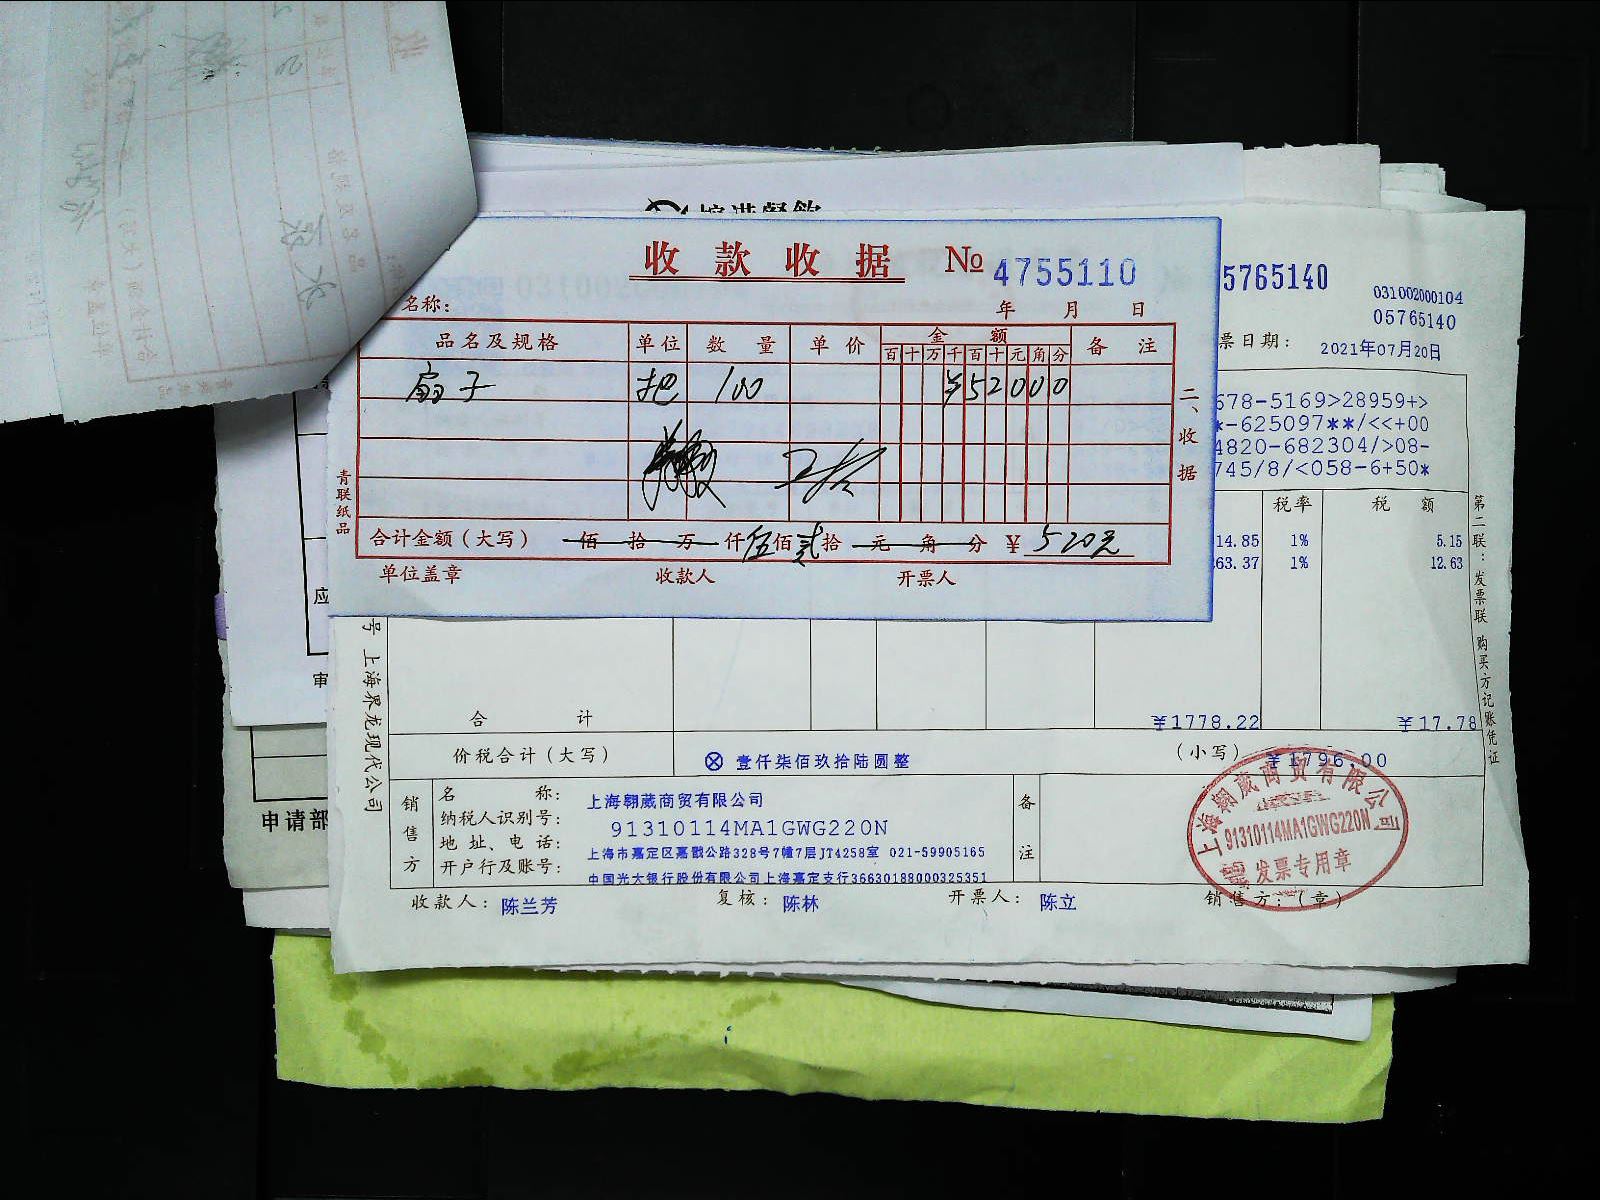 收款收据 № 4755110
名称： 年 月 日
品名及规格 单位 数量 单价 金额 备注
百 十 万 千 百 十 元 角 分
扇子 把 100 ¥52000
合计金额（大写） 佰 拾 万 仟 伍佰 贰拾 元 角 分 ¥ 520元
单位盖章 收款人 开票人
二、收据
青联纸品
5765140
031002000104
05765140
票日期： 2021年07月20日
678-5169>28959+>
*-625097**/<<+00
4820-682304/>08-
745/8/<058-6+50*
税率 税额
14.85 1% 5.15
63.37 1% 12.63
合计 ¥1778.22 ¥17.78
价税合计（大写） ⊗ 壹仟柒佰玖拾陆圆整 （小写） ¥1796.00
销售方
名称： 上海翱葳商贸有限公司
纳税人识别号： 91310114MA1GWG220N
地址、电话： 上海市嘉定区嘉戬公路328号7幢7层JT4258室 021-59905165
开户行及账号： 中国光大银行股份有限公司上海嘉定支行36630188000325351
备注
收款人： 陈兰芳 复核： 陈林 开票人： 陈立 销售方：（章）
上海翱葳商贸有限公司
91310114MA1GWG220N
发票专用章
第二联：发票联 购买方记账凭证
号 上海界龙现代公司
应
审
申请部